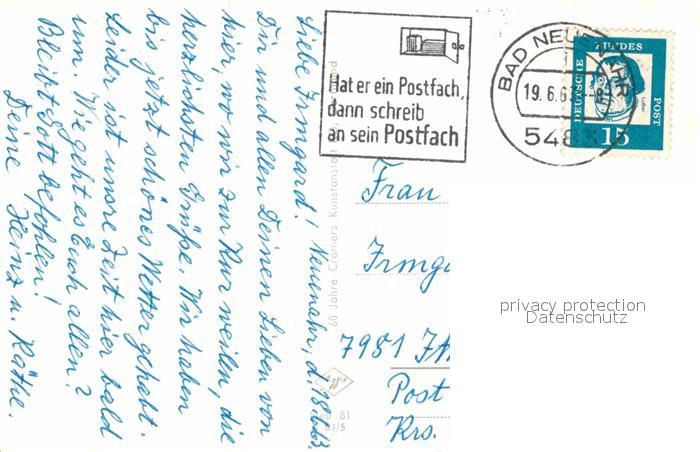 Liebe Irmgard! Neuenahr, d. 18.6.63.
Dir und allen Deinen Lieben von
hier, wo wir zur Kur weilen, die
herzlichsten Grüße. Wir haben
bis jetzt schönes Wetter gehabt.
Leider ist unsre Zeit hier bald
um. Wie geht es Euch allen?
Bleibt Gott befohlen!
Deine Heinz u. Käthe.
Hat er ein Postfach,
dann schreib
an sein Postfach
BAD NEUENAHR
19.6.63
5483
DEUTSCHE BUNDES POST
15
60 Jahre Cramers Kunstanstalt
Frau
Irmg
7981
Post
Krs.
81
83/5
privacy protection
Datenschutz